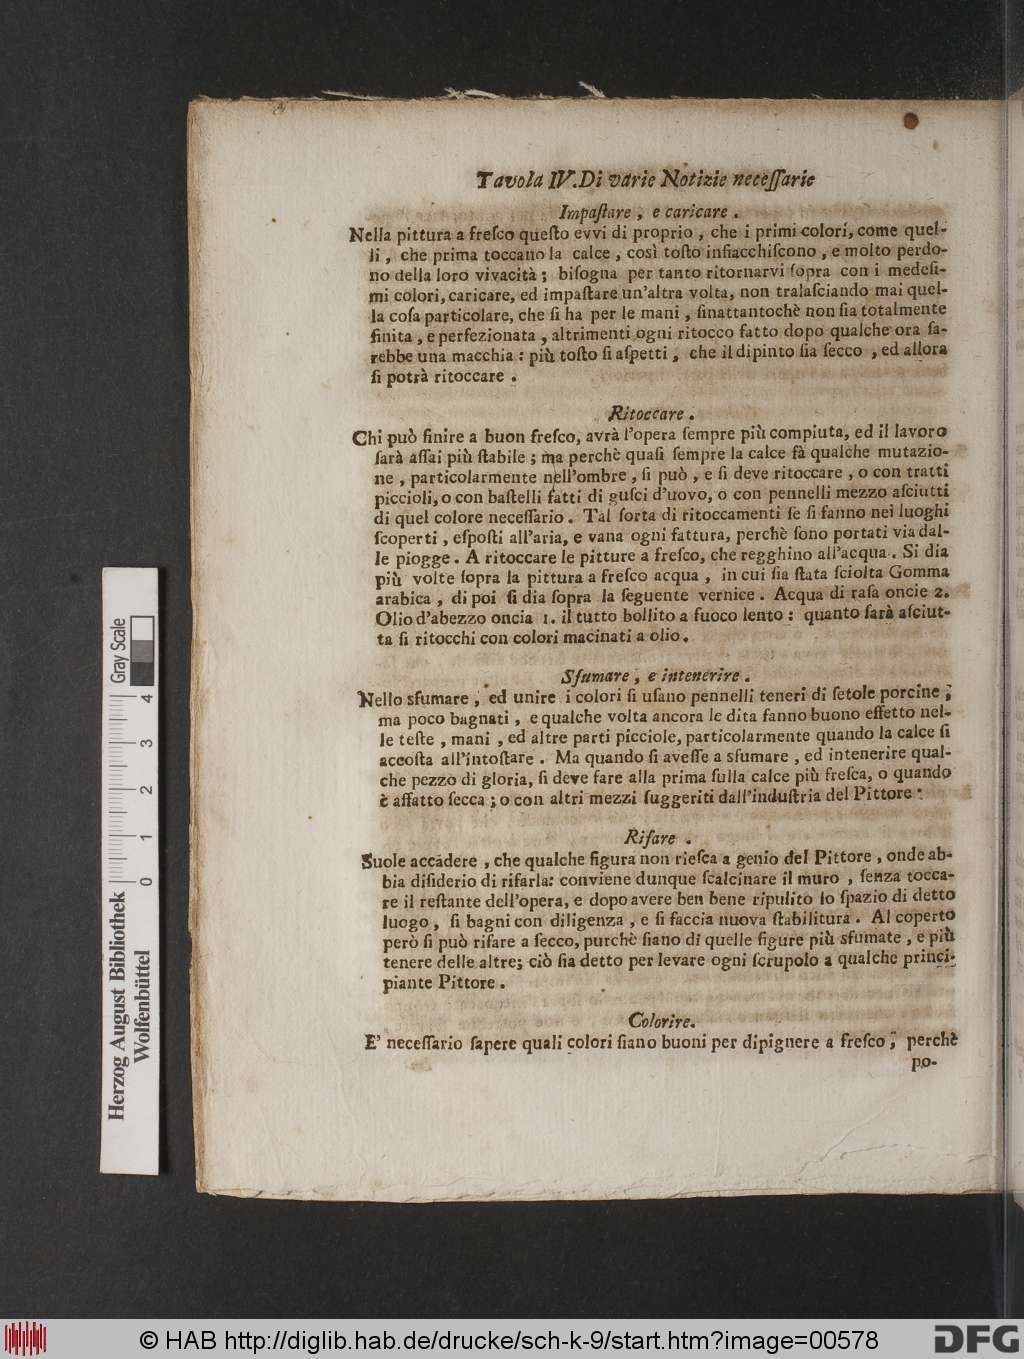 Tavola IV. Di varie Notizie neceſſarie
Impaſtare , e caricare .
Nella pittura a freſco queſto evvi di proprio , che i primi colori, come quel-
li , che prima toccano la calce , così toſto infiacchiſcono , e molto perdo-
no della loro vivacità ; biſogna per tanto ritornarvi ſopra con i medeſi-
mi colori, caricare, ed impaſtare un'altra volta, non tralaſciando mai quel-
la coſa particolare, che ſi ha per le mani , ſinattantochè non ſia totalmente
finita , e perfezionata , altrimenti ogni ritocco fatto dopo qualche ora ſa-
rebbe una macchia : più toſto ſi aſpetti , che il dipinto ſia ſecco , ed allora
ſi potrà ritoccare .
Ritoccare .
Chi può finire a buon freſco, avrà l'opera ſempre più compiuta, ed il lavoro
ſarà aſſai più ſtabile ; ma perchè quaſi ſempre la calce fà qualche mutazio-
ne , particolarmente nell'ombre , ſi può , e ſi deve ritoccare , o con tratti
piccioli, o con baſtelli fatti di guſci d'uovo, o con pennelli mezzo aſciutti
di quel colore neceſſario . Tal ſorta di ritoccamenti ſe ſi fanno nei luoghi
ſcoperti , eſpoſti all'aria, e vana ogni fattura, perchè ſono portati via dal-
le piogge . A ritoccare le pitture a freſco, che regghino all'acqua . Si dia
più volte ſopra la pittura a freſco acqua , in cui ſia ſtata ſciolta Gomma
arabica , di poi ſi dia ſopra la ſeguente vernice . Acqua di raſa oncie 2.
Olio d'abezzo oncia 1. il tutto bollito a fuoco lento : quanto ſarà aſciut-
ta ſi ritocchi con colori macinati a olio .
Sfumare , e intenerire .
Nello sfumare , ed unire i colori ſi uſano pennelli teneri di ſetole porcine ,
ma poco bagnati , e qualche volta ancora le dita fanno buono effetto nel-
le teſte , mani , ed altre parti picciole, particolarmente quando la calce ſi
accoſta all'intoſtare . Ma quando ſi aveſſe a sfumare , ed intenerire qual-
che pezzo di gloria, ſi deve fare alla prima ſulla calce più freſca, o quando
è affatto ſecca ; o con altri mezzi ſuggeriti dall'induſtria del Pittore .
Rifare .
Suole accadere , che qualche figura non rieſca a genio del Pittore , onde ab-
bia diſiderio di rifarla: conviene dunque ſcalcinare il muro , ſenza tocca-
re il reſtante dell'opera, e dopo avere ben bene ripulito lo ſpazio di detto
luogo , ſi bagni con diligenza , e ſi faccia nuova ſtabilitura . Al coperto
però ſi può rifare a ſecco, purchè ſiano di quelle figure più sfumate , e più
tenere delle altre; ciò ſia detto per levare ogni ſcrupolo a qualche princi-
piante Pittore .
Colorire.
E' neceſſario ſapere quali colori ſiano buoni per dipignere a freſco , perchè
po-
Herzog August Bibliothek
Wolfenbüttel
0 1 2 3 4
Gray Scale
© HAB http://diglib.hab.de/drucke/sch-k-9/start.htm?image=00578
DFG